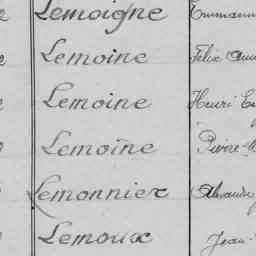 Lemoigne Emmanu
Lemoine Félix
Lemoine Henri
Lemoine Pierre
Lemonnier Alexandre
Lemoux Jean